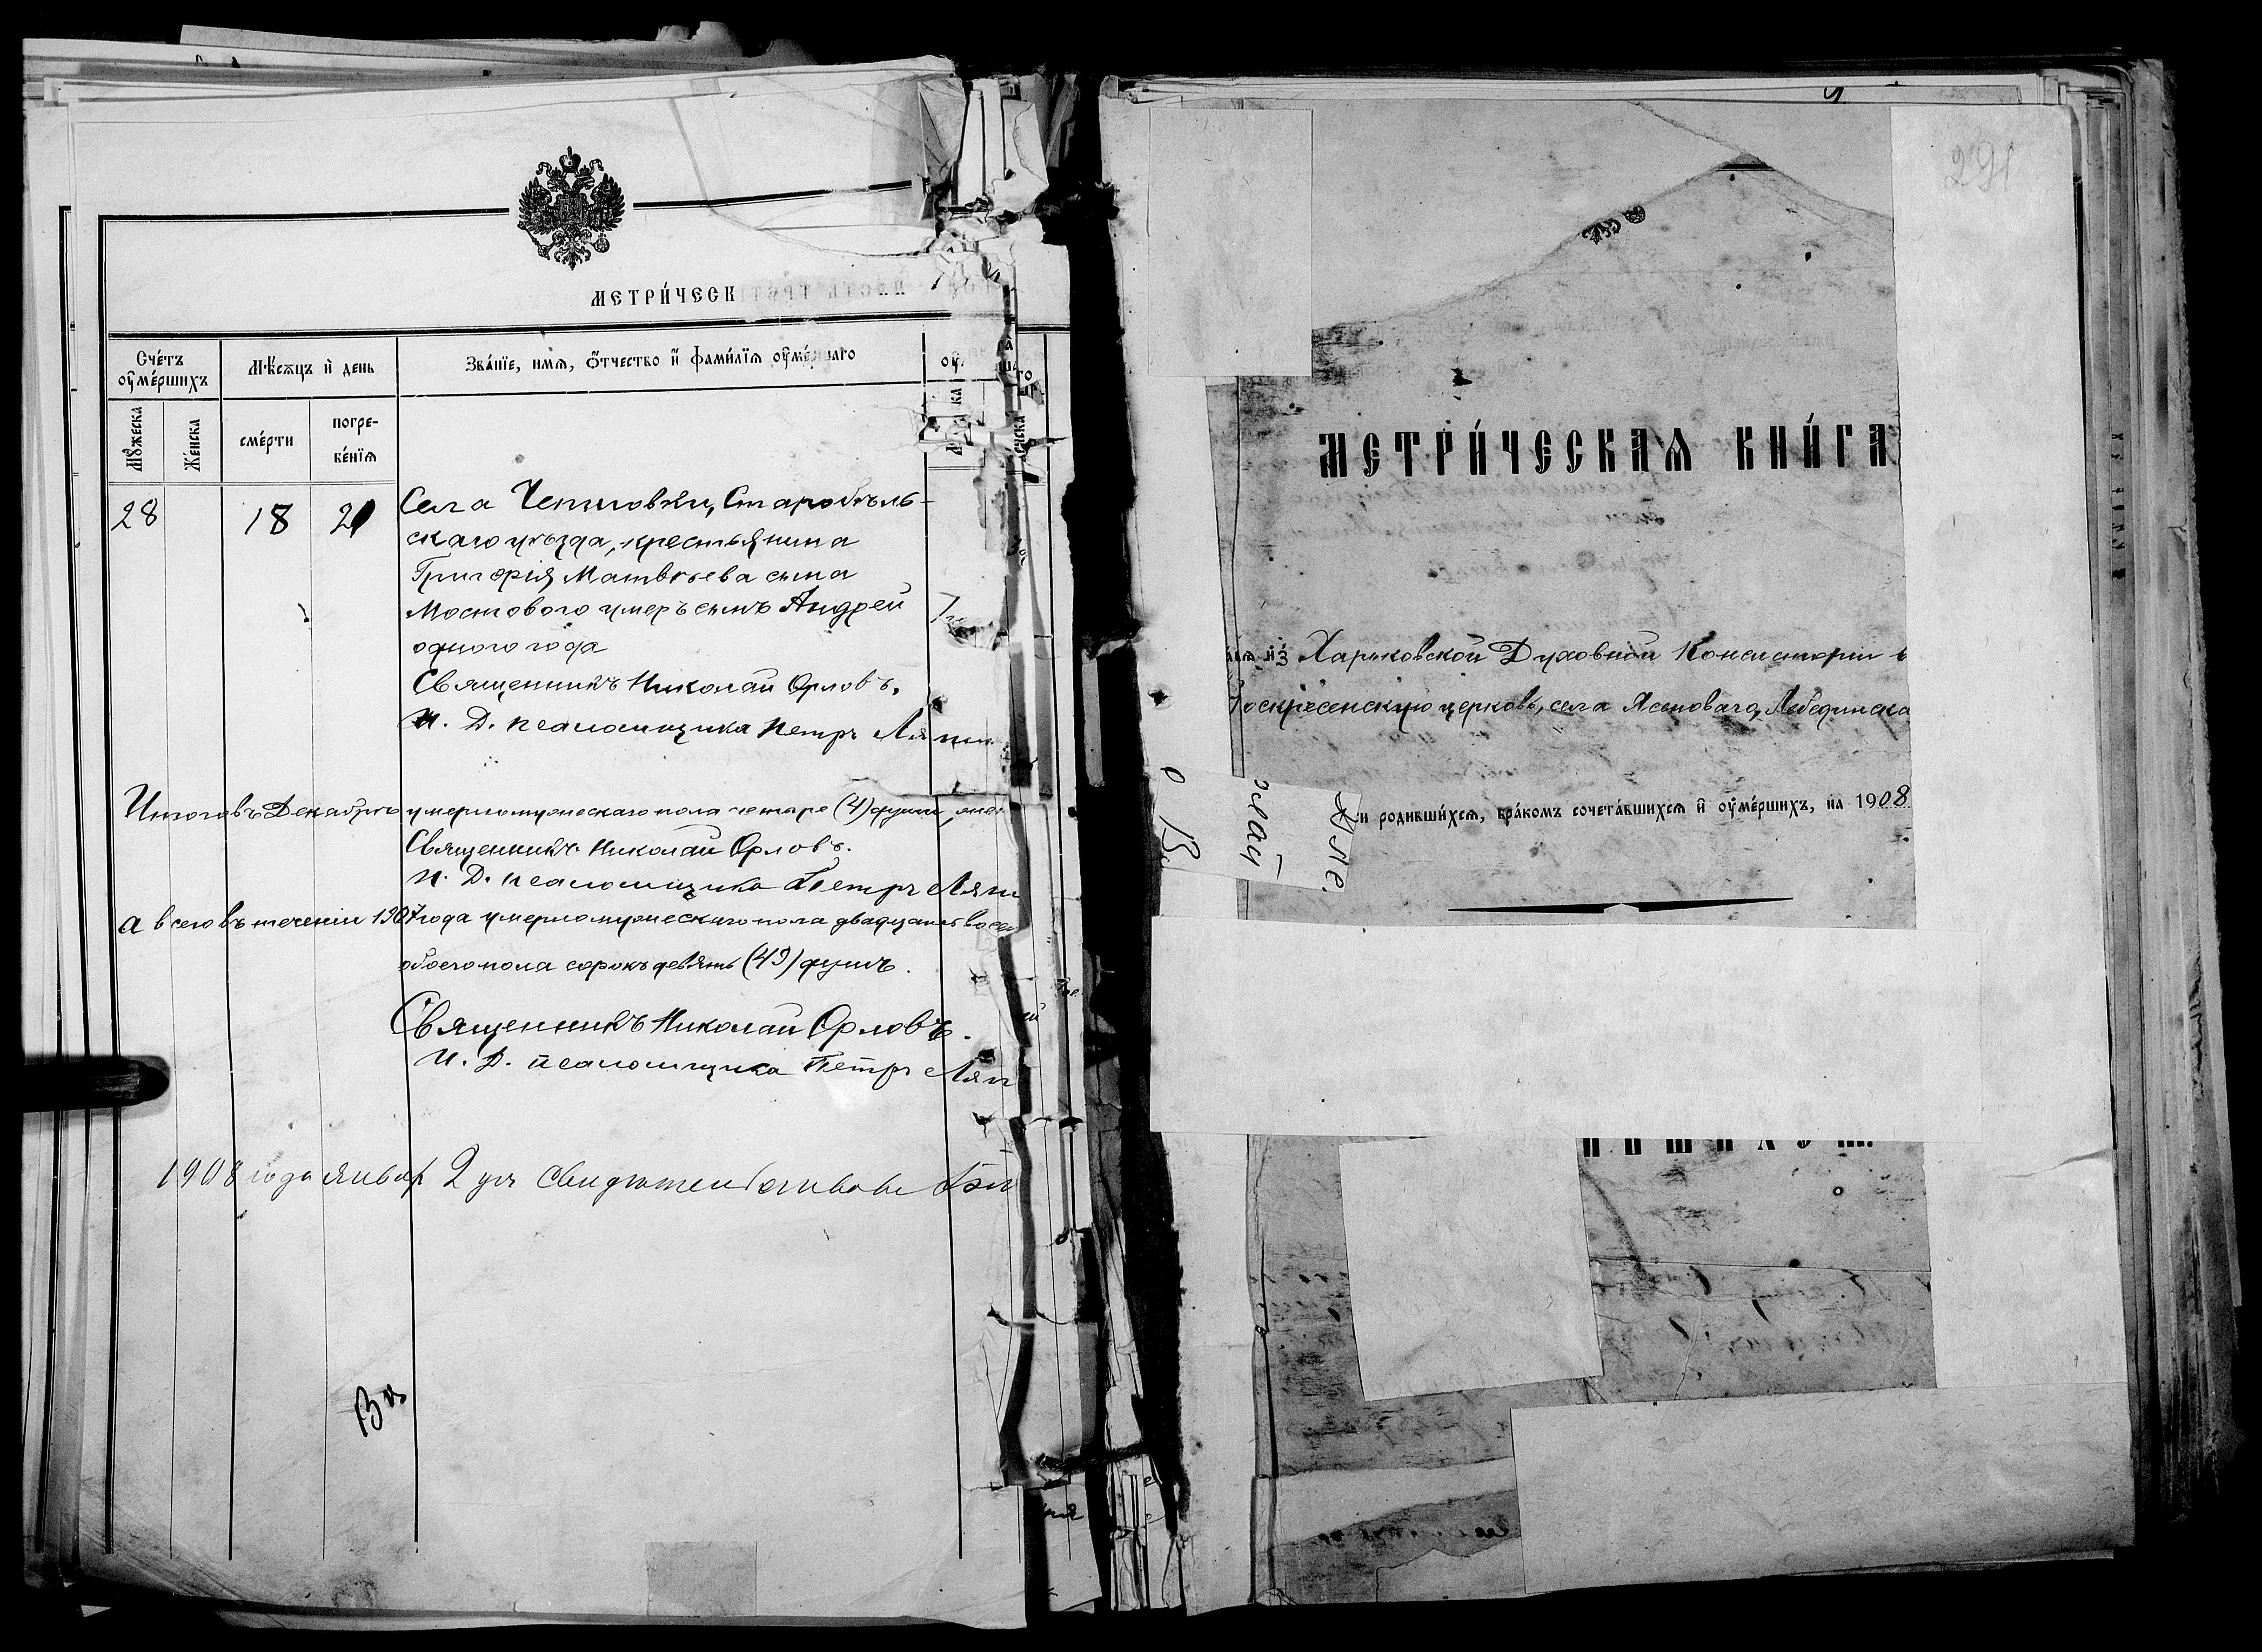 МЕТРИ́ЧЕСК
Сче́тъ оу҆ме́ршихъ
Мѣ́сѧцъ и҆ день
Зва́нїе, имѧ, ѻ҆́тчество и҆ фами́лїѧ оу҆ме́ршаго
Мꙋ́жеска
Же́нска
сме́рти
погре-
бе́нїѧ
28
18
21
Села Чепиговки, Старобѣль-
скаго уѣзда, крестьянина
Григорія Матвѣева сына
Мостового умеръ сынъ Андрей
одного года
Священникъ Николай Орловъ.
И. Д. псаломщика Петръ
Итого въ Декабрѣ умерло мужескаго пола четыре (4) души,
Священникъ Николай Орловъ.
И. Д. псаломщика Петръ
А всего въ теченіи 1907 года умерло мужескаго пола двадцать
обоего пола сорокъ девять (49) душъ.
Священникъ Николай Орловъ.
И. Д. псаломщика Петръ
1908 года Январ 2 дня
291
МЕТРИ́ЧЕСКАѦ КНИ́ГА
и҆з̾ Харьковской Духовной Консисторіи в
оскресенскую церковь, села Ясеноваго, Лебединска
и родивши́хсѧ, бра́комъ сочета́вшихсѧ и҆ оу҆ме́ршихъ, на 1908